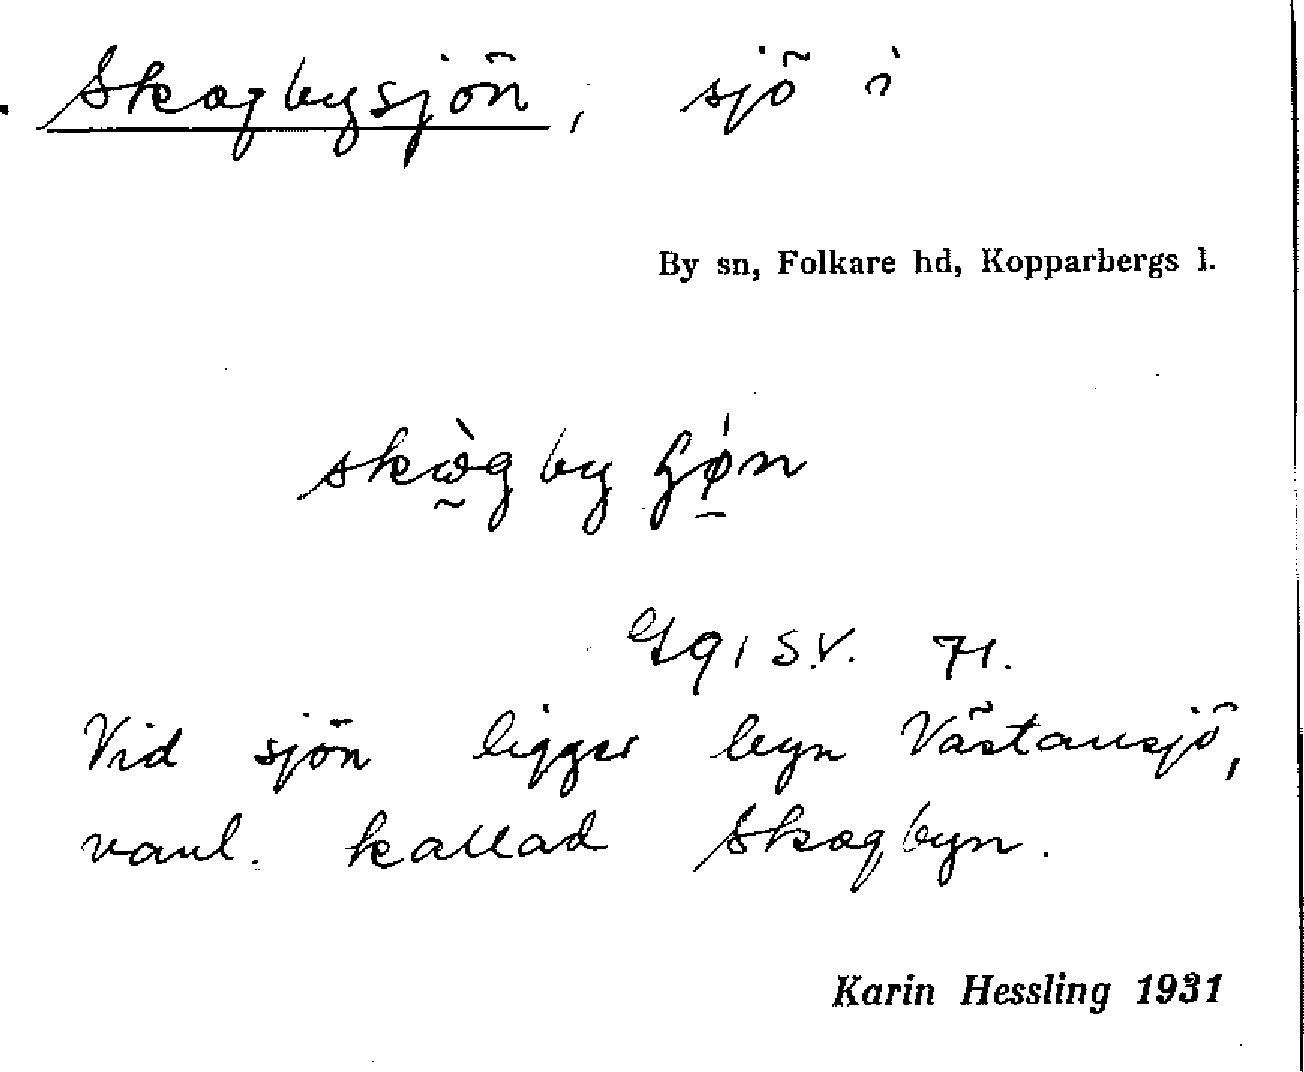 Skogbysjön, sjö i
By sn, Folkare hd, Kopparbergs l.
skògby
S.V. 71.
Vid sjön ligger byn Västansjö,
vanl. kallad Skogbyn.
Karin Hessling 1931